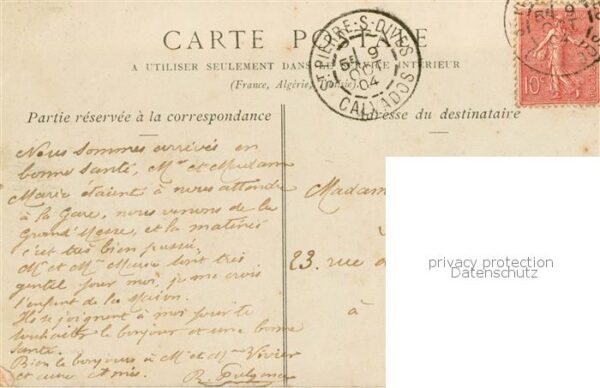 CARTE POSTALE
A UTILISER SEULEMENT DANS LE SERVICE INTÉRIEUR
(France, Algérie, Tunisie).
ST PIERRE-S-DIVES
9
OCT
04
CALVADOS
10c
Partie réservée à la correspondance
Adresse du destinataire
Nous sommes arrivés en
bonne santé, Mr et Madame
Marie étaient à nous attendre
à la Gare, nous venons de la
Grand'Messe, et la matinée
c'est très bien passée,
Mr et Me Marie sont très
gentil pour moi, je me crois
l'enfant de la maison.
Ils se joignent à moi pour te
souhaiter le bonjour et une bonne
santé.
Bien le bonjour à Mr et Mme Vivier
et amis.
Madam
23. rue d
à
privacy protection
Datenschutz